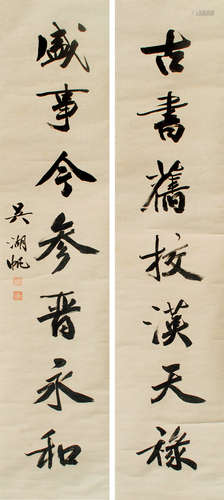 古書舊校漢天祿
盛事今參晋永和
吳湖帆